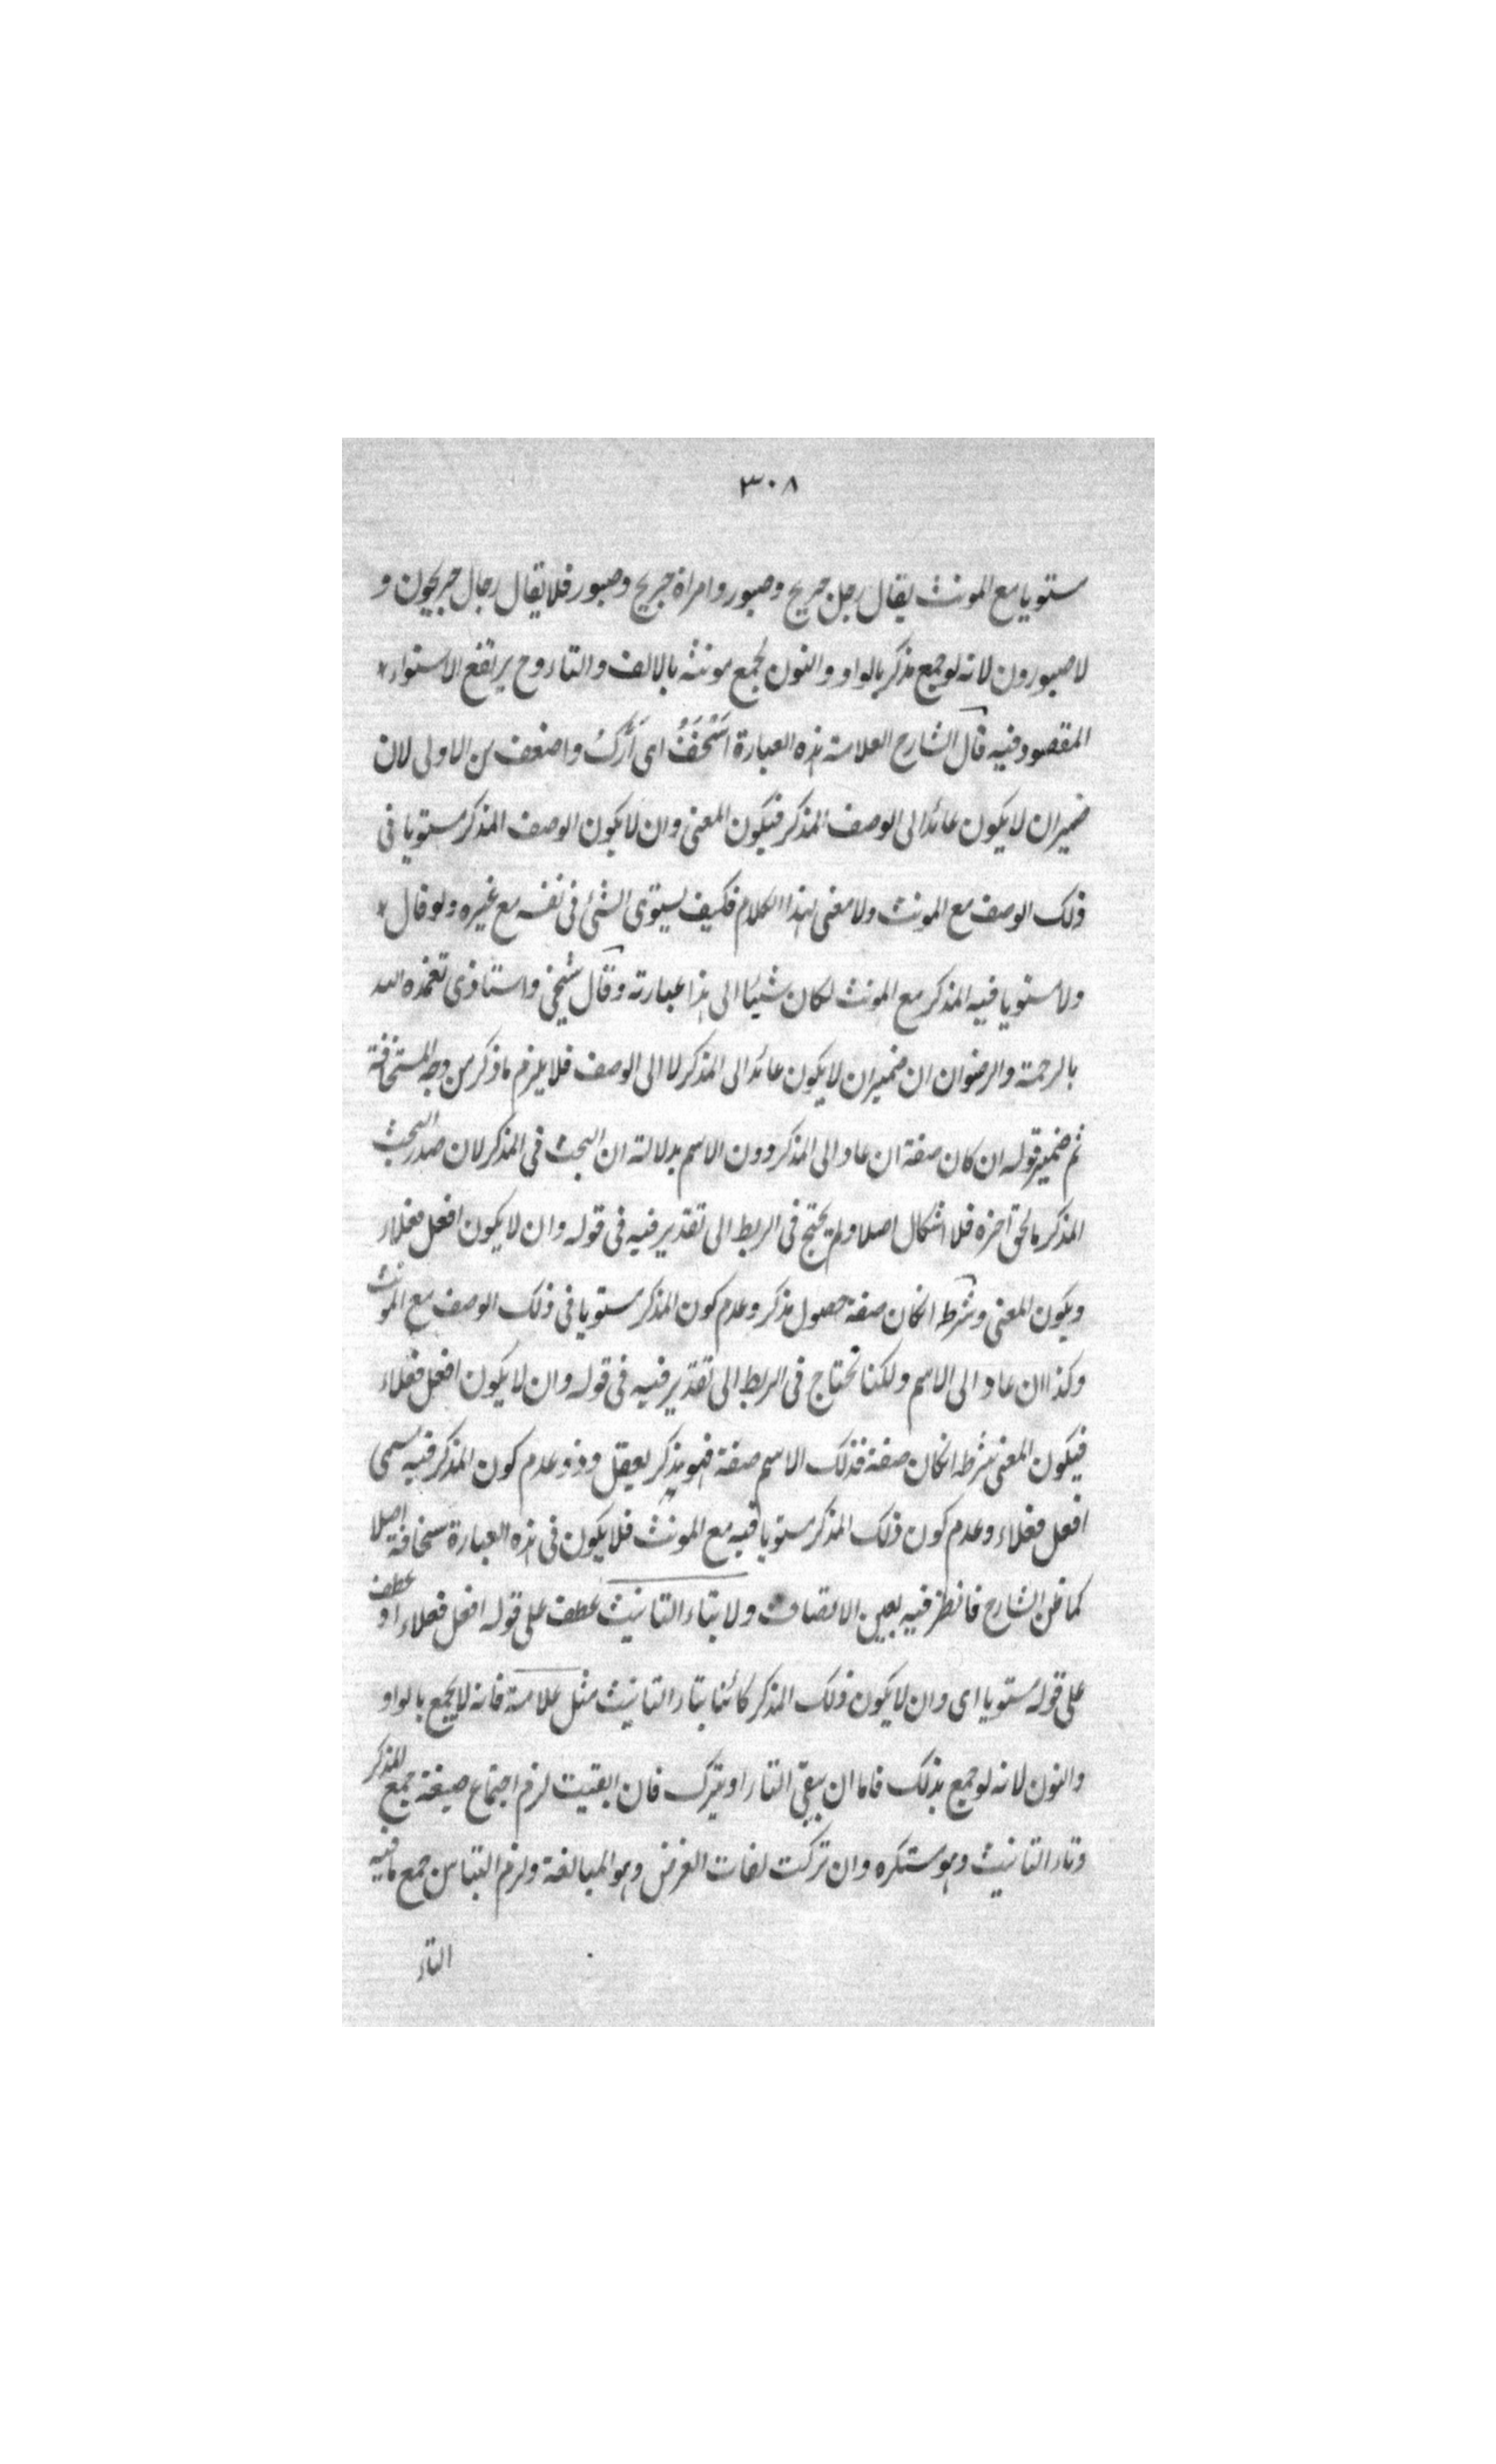 ٣٠٨
مستويا مع المونث يقال رجل جريح وصبور وامراة جريح وصبور فلا يقال رجال جريحون و
لا صبورون لانه لو جمع مذكر بالواو والنون لجمع مونثه بالالف والتاء وح يرتفع الاستواء
المقصود فيه قال الشارح العلامة هذه العبارة اَسْخَفُ اى اَرَكُّ واضعف من الاولى لان
ضمير ان لا يكون عائد الى الوصف المذكر فيكون المعنى وان لا يكون الوصف المذكر مستويا فى
ذلك الوصف مع المونث ولا معنى لهذا الكلام فكيف يستوى الشئ فى نفسه مع غيره ولو قال
ولا مستويا فيه المذكر مع المونث لكان شيئا الى هذا عبارته وقال شيخى واستاذى تغمده الله
بالرحمة والرضوان ان ضمير ان لا يكون عائد الى المذكر لا الى الوصف فلا يلزم ما ذكر من وجه السخافة
ثم ضمير قوله ان كان صفة ان عاد الى المذكر دون الاسم بدلالة ان البحث فى المذكر لان صدر البحث
المذكر ما لحق آخره فلا اشكال اصلا ولم يحتج فى الربط الى تقدير فيه فى قوله وان لا يكون افعل فعلاء
ويكون المعنى وشرطه انكان صفة حصول مذكر وعدم كون المذكر مستويا فى ذلك الوصف مع المونث
وكذا ان عاد الى الاسم ولكنا نحتاج فى الربط الى تقدير فيه فى قوله وان لا يكون افعل فعلاء
فيكون المعنى شرطه انكان صفة فذلك الاسم صفة فهو مذكر يعقل وذو عدم كون المذكر فيه مسمى
افعل فعلاء وعدم كون ذلك المذكر مستويا فيه مع المونث فلا يكون فى هذه العبارة سخافة اصلا
كما ظن الشارح فانظر فيه بعين الانصاف ولا بتاء التانيث عطف على قوله افعل فعلاء او عطف
على قوله مستويا اى وان لا يكون ذلك المذكر كائنا بتاء التانيث مثل علامة فانه لا يجمع بالواو
والنون لانه لو جمع بذلك فاما ان يبقى التاء او يترك فان ابقيت لزم اجتماع صيغة جمع المذكر
وتاء التانيث وهو مستكره وان تركت لفات الغرض وهو المبالغة ولزم التباس جمع ما فيه
التاء